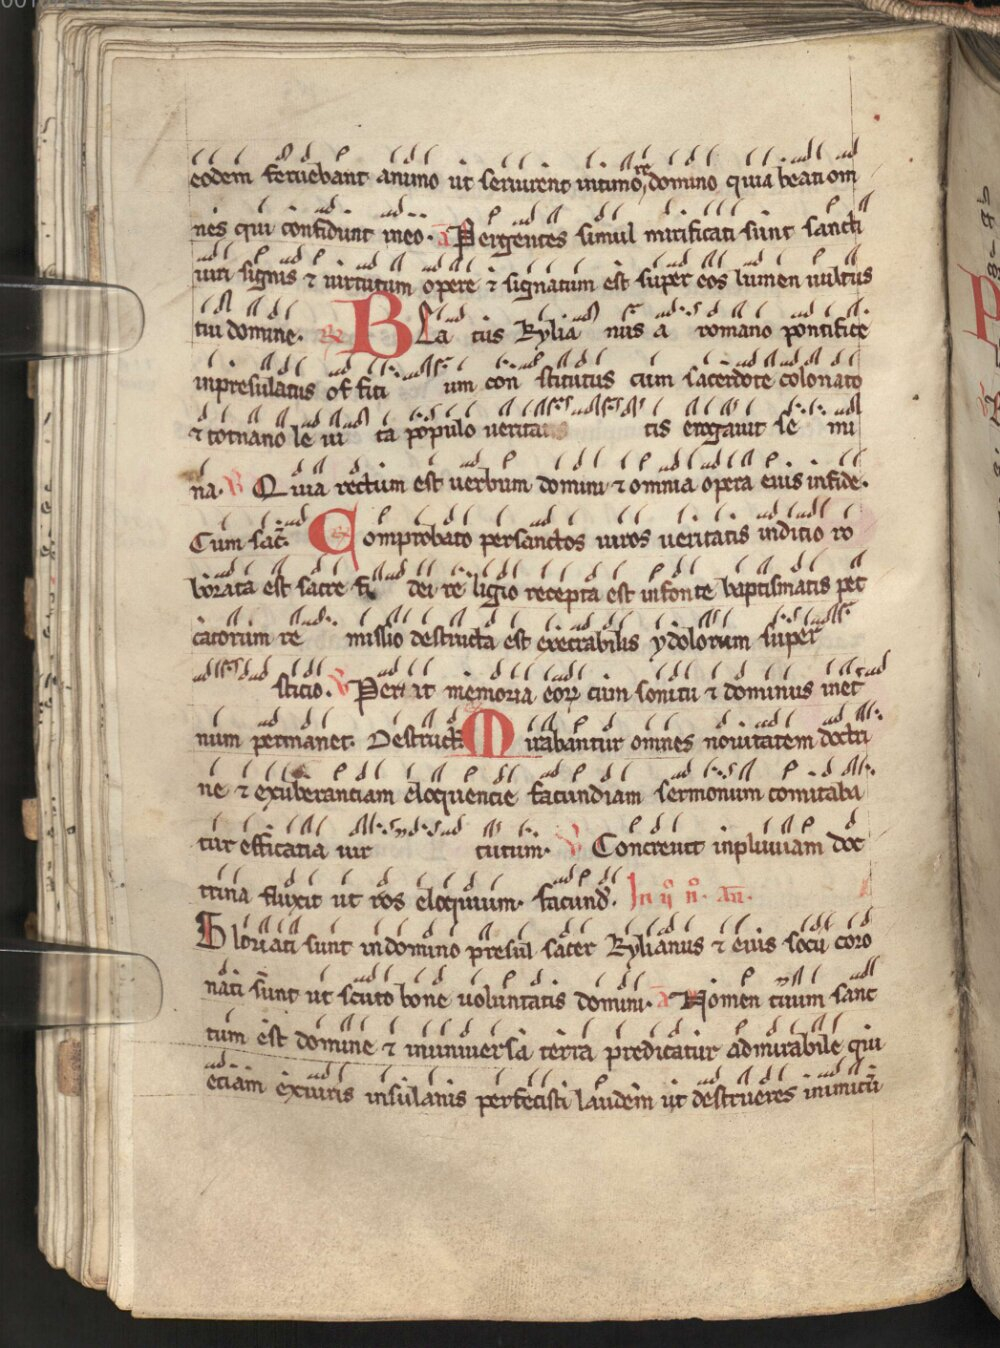 eodem feruebant animo ut seruirent intimore domino quia beati om
nes qui confidunt ineo. a Pergentes simul mirificati sunt sancti
uiri signis ⁊ uirtutum opere ⁊ signatum est super eos lumen uultus
tui domine. R BEa tus Kylia nus a romano pontifice
inpresulatus of fiti um con stitutus cum sacerdote colonato
⁊ totnano le ui ta populo uerita tis erogauit se mi
na. V Quia rectum est uerbum domini ⁊ omnia opera eius infide.
Cum sac̄. Comprobato persanctos uiros ueritatis inditio ro
borata est sacre fi dei re ligio recepta est infonte baptismatis pec
catorum re missio destructa est execrabilis ydolorum super
sticio. V Periit memoria eorꝝ cum sonitu ⁊ dominus inet
num permanet. Destructa. Mirabantur omnes nouitatem doctri
ne ⁊ exuberantiam eloquencie facundiam sermonum comitaba
tur efficatia uir tutum. V Concreuit inpluuiam doc
trina fluxit ut ros eloquium. facund̄. In ij n̄. an̄.
Gloriati sunt indomino presul sacer Kylianus ⁊ eius socii coro
nati sunt ut scuto bone uoluntatis domini. a Nomen tuum sanc
tum est domine ⁊ inuniuersa terra predicatur admirabile qui
etiam exuiris insulanis perfecisti laudem ut destrueres inimicū